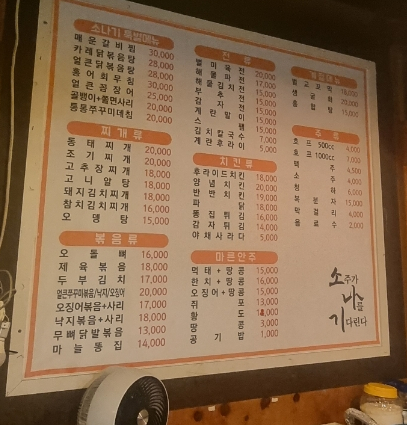 소나기 특별메뉴
매운갈비찜 30,000
카레닭볶음탕 28,000
얼큰닭볶음탕 28,000
홍어회무침 30,000
얼큰곰장어 25,000
골뱅이+쫄면사리 20,000
통통쭈꾸미데침 20,000
찌개류
동태찌개 20,000
조기찌개 20,000
고추장찌개 18,000
고니알탕 18,000
돼지김치찌개 18,000
참치김치찌개 16,000
오뎅탕 15,000
볶음류
오돌뼈 16,000
제육볶음 18,000
두부김치 17,000
얼큰쭈꾸미볶음/낙지/오징어 20,000
오징어볶음+사리 17,000
낙지볶음+사리 18,000
무뼈닭발볶음 13,000
마늘똥집 14,000
전류
별미육전 20,000
해물파전 17,000
해물김치전 17,000
부추전 15,000
감자전 15,000
계란말이 15,000
스팸 15,000
김치칼국수 7,000
계란후라이 5,000
치킨류
후라이드치킨 18,000
양념치킨 20,000
반반치킨 19,000
파닭 18,000
똥집튀김 16,000
감자튀김 14,000
야채사라다 5,000
마른안주
먹태+땅콩 15,000
한치+땅콩 16,000
오징어+땅콩 15,000
쥐포 13,000
황도
땅콩 3,000
공기밥 1,000
계절메뉴
벌교꼬막 18,000
생굴회 20,000
홍합탕 15,000
주종
호프 500cc 4,000
호프 1000cc
맥주
소주
청하
복분자
막걸리 4,000
음료수 2,000
소주가
나를
기다린다